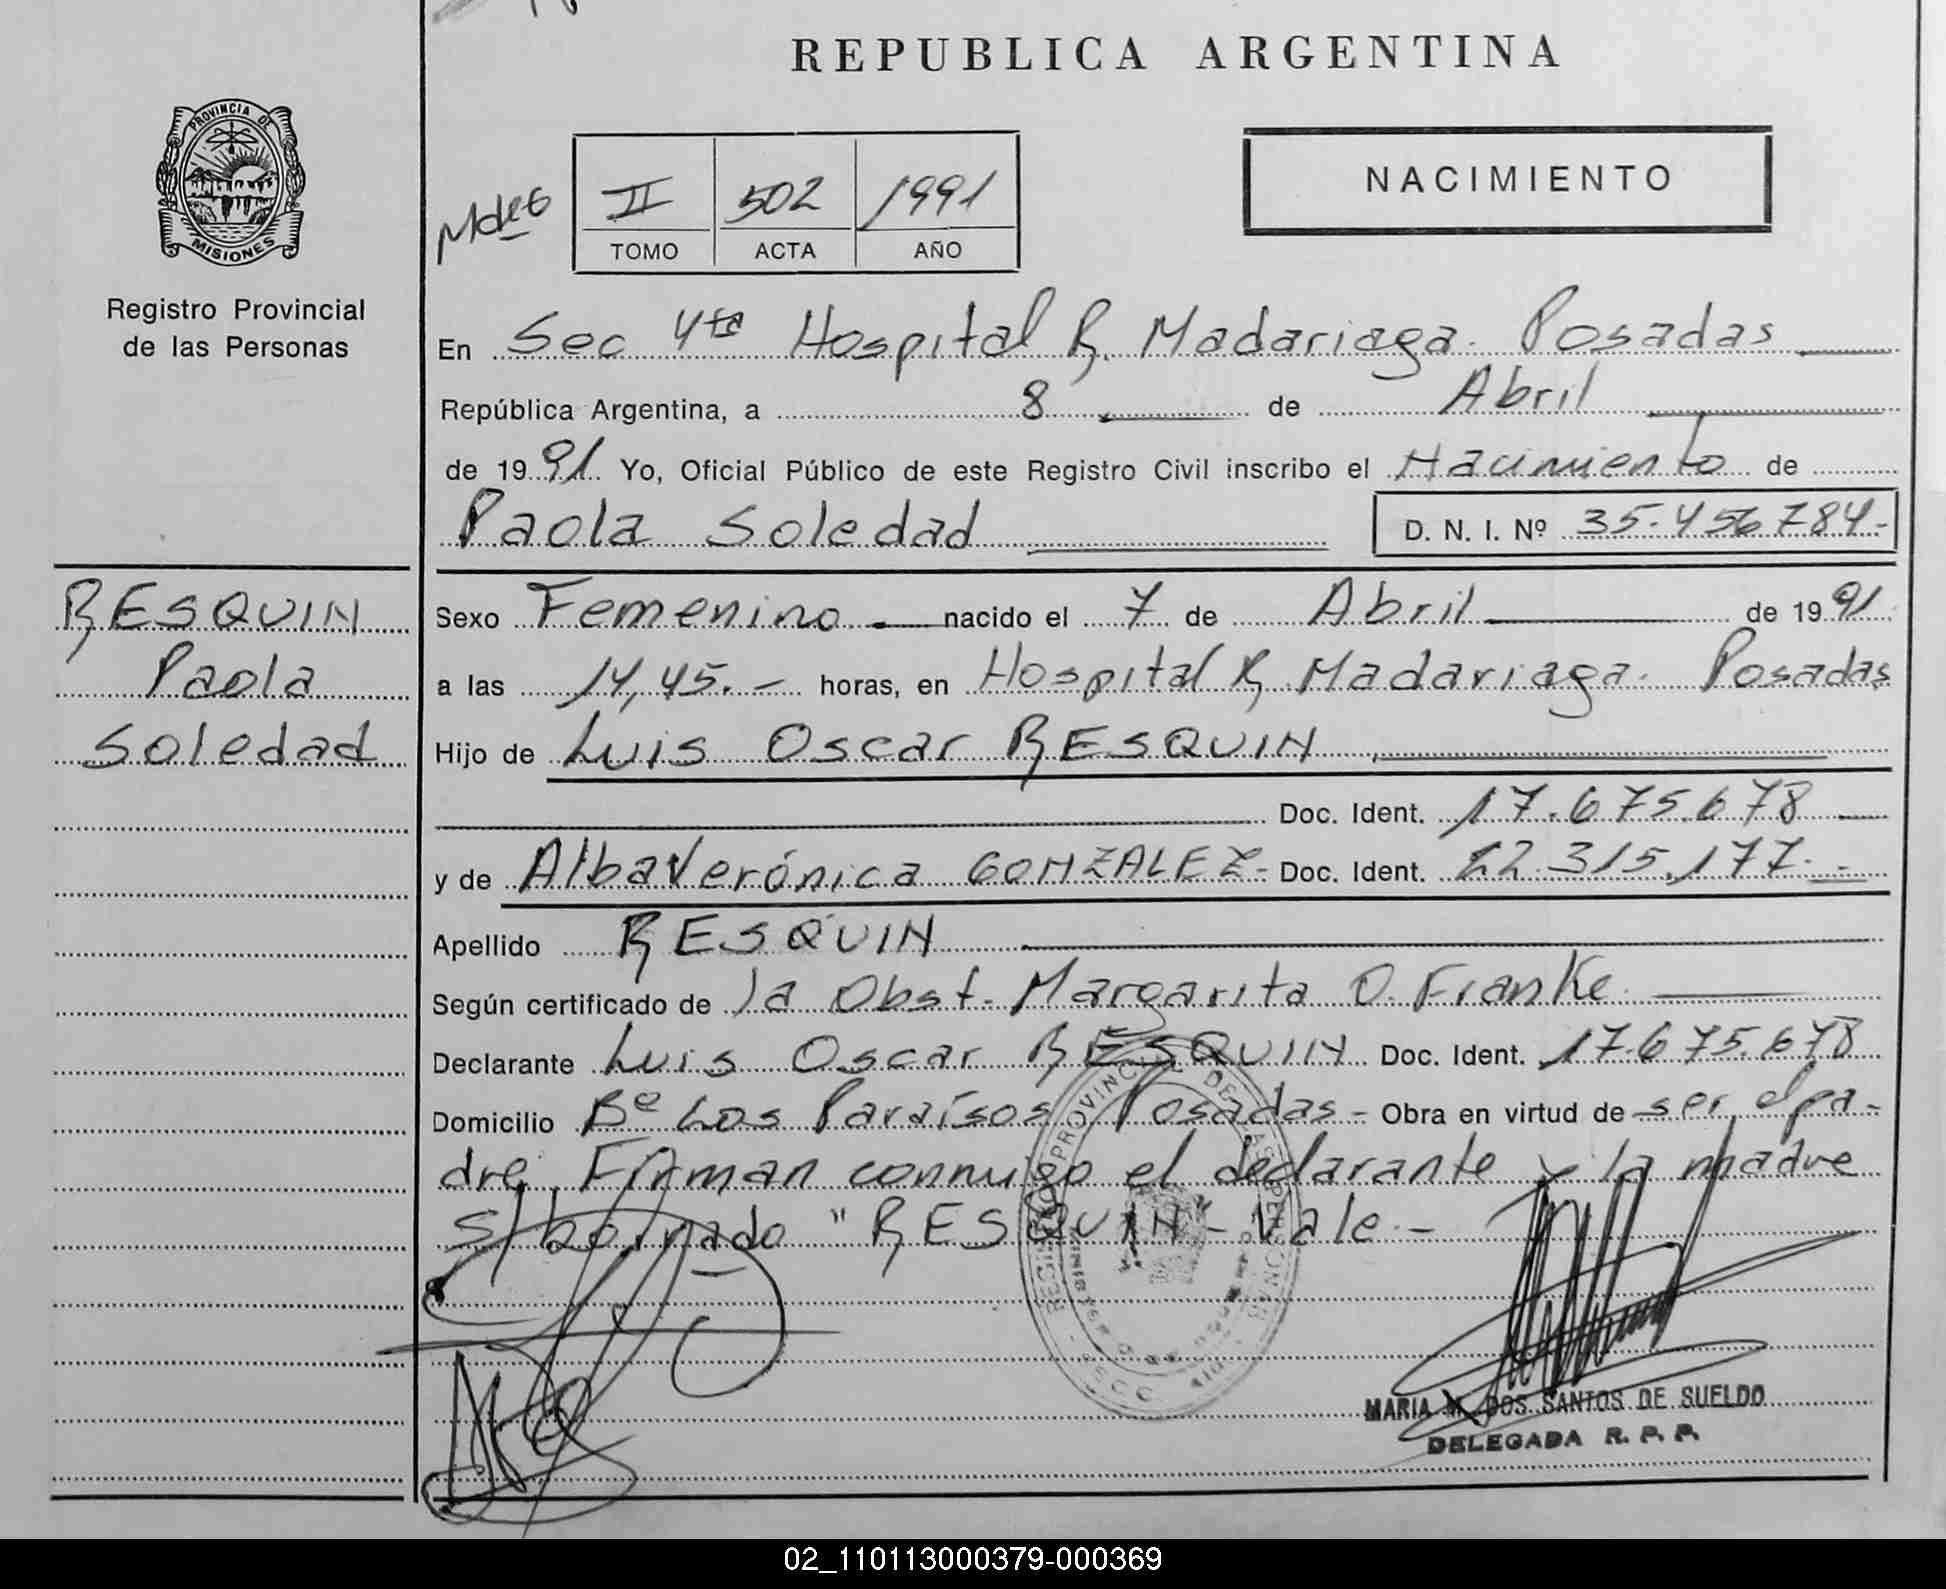 REPUBLICA ARGENTINA
PROVINCIA DE
MISIONES
Registro Provincial
de las Personas
II 502 1991
TOMO ACTA AÑO
NACIMIENTO
En Sec 4ta Hospital R. Madariaga. Posadas
República Argentina, a 8 de Abril
de 1991 Yo, Oficial Público de este Registro Civil inscribo el Nacimiento de
Paola Soledad D. N. I. Nº 35.456.784.-
RESQUIN
Paola
Soledad
Sexo Femenino.- nacido el 7 de Abril de 1991
a las 14,45.- horas, en Hospital R. Madariaga. Posadas
Hijo de Luis Oscar RESQUIN
Doc. Ident. 17.675.678
y de Alba Verónica GONZALEZ- Doc. Ident. 22.315.177.-
Apellido RESQUIN
Según certificado de la Obst. Margarita O. Franke
Declarante Luis Oscar RESQUIN Doc. Ident. 17.675.678
Domicilio Bº Los Paraísos Posadas- Obra en virtud de ser el pa-
dre. Firman conmigo el declarante y la madre
s/borrado "RESQUIN"- Vale.-
MARIA M. DOS SANTOS DE SUELDO
DELEGADA R. P. P.
02_110113000379-000369